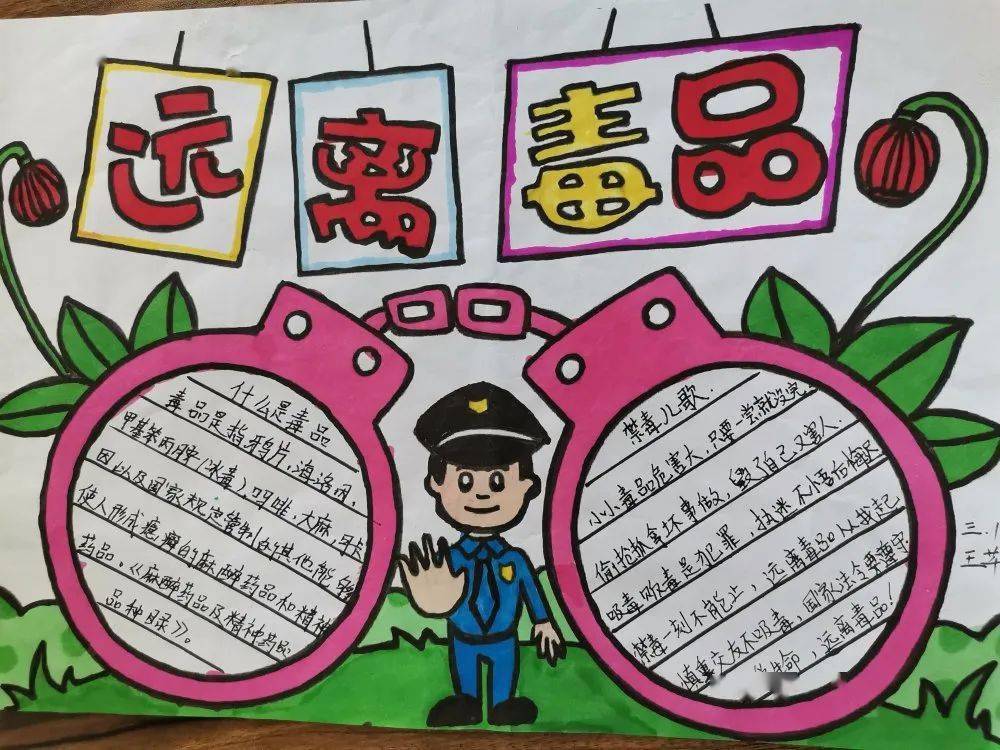 远离毒品
什么是毒品
毒品是指鸦片,海洛因,
甲基苯丙胺(冰毒),吗啡,大麻 可卡
因以及国家规定管制的其他能够
使人形成瘾癖的麻醉药品和精神
药品。《麻醉药品及精神药品
品种目录》。
禁毒儿歌.
小小毒品危害大,只要一尝就没完
偷抢抓拿坏事做,毁了自己又害人.
吸毒贩毒是犯罪,执迷不悟后悔迟
禁毒一刻不能止,远离毒品从我起
慎重交友不吸毒,国家法令要遵守
生命,远离毒品!
三.
王